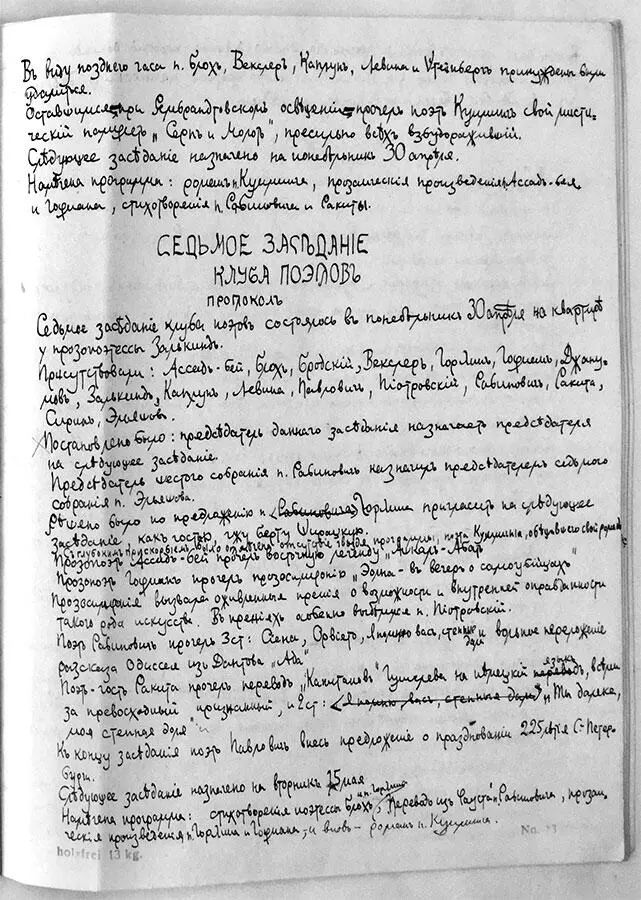 Въ виду позднего часа п. Блохъ, Векслеръ, Каплунъ, Левина и Штейнбергъ принуждены были
удалиться.
Оставшимся при Рембрандтовскомъ освѣщеніи прочелъ поэтъ Кузминъ свой мисти-
ческій памфлетъ „Серпъ и Молотъ", пресильно всѣхъ взбудоражившій.
Слѣдующее засѣданіе назначено на понедѣльникъ 30 апрѣля.
Намѣчена программа: романъ п. Кузмина, прозаическія произведенія Ассадъ-бея
и Гофмана, стихотворенія п. Рабиновича и Ракиты.
СЕДЬМОЕ ЗАСѢДАНІЕ
КЛУБА ПОЭТОВЪ
ПРОТОКОЛЪ
Седьмое засѣданіе клуба поэтовъ состоялось въ понедѣльникъ 30 апрѣля на квартирѣ
у прозопоэтессы Залкиндъ.
Присутствовали: Ассадъ-бей, Блохъ, Бродскій, Векслеръ, Горлинъ, Гофманъ, Джану-
мовъ, Залкиндъ, Каплунъ, Левина, Павловичъ, Піотровскій, Рабиновичъ, Ракита,
Сиринъ, Эльяшовъ.
Постановлено было: предсѣдатель даннаго засѣданія назначаетъ предсѣдателя
на слѣдующее засѣданіе.
Предсѣдатель шестого собранія п. Рабиновичъ назначилъ предсѣдателемъ седьмого
собранія п. Эльяшова.
Рѣшено было по предложенію п. (Рабиновича) Горлина пригласить на слѣдующее
засѣданіе какъ гостью, г-жу Берту
Съ глубокимъ прискорбіемъ было отмѣчено отсутствіе звѣзды программы, поэта Кузмина, обѣщавшего свой романъ
Прозопоэтъ Ассадъ-бей прочелъ восточную легенду
Прозопоэтъ Гофманъ прочелъ прозосимфонію „ въ вечеръ о самоубійцахъ"
Прозосимфонія вызвала оживленныя пренія о возможности и внутренней оправданности
такого рода искусства. Въ преніяхъ особенно выдѣлился п. Піотровскій.
Поэтъ Рабиновичъ прочелъ 3 ст: Сіена, Орвіето, Я помню васъ, степные дали и вольное переложеніе
разсказа Одиссея изъ Дантова „Ада"
Поэтъ-гость Ракита прочелъ переводъ „Капитановъ" Гумилева на нѣмецкій языкъ переводъ, всѣми
за превосходный признанный, и 2 ст: („Я помню васъ, степные дали") „Ты далека,
моя степная доля" и
Къ концу засѣданія поэтъ Павловичъ внесъ предложеніе о празднованіи 225 лѣтія С-Петер-
бурга.
Слѣдующее засѣданіе назначено на вторникъ 15 мая
Намѣчена программа: стихотворенія поэтессы Блохъ, и п. Горлина, Переводъ изъ Фауста п. Рабиновича, прозаи-
ческія произведенія п. Горлина и Гофмана, и вновь - романъ п. Кузмина.
No. 13
holzfrei 13 kg.